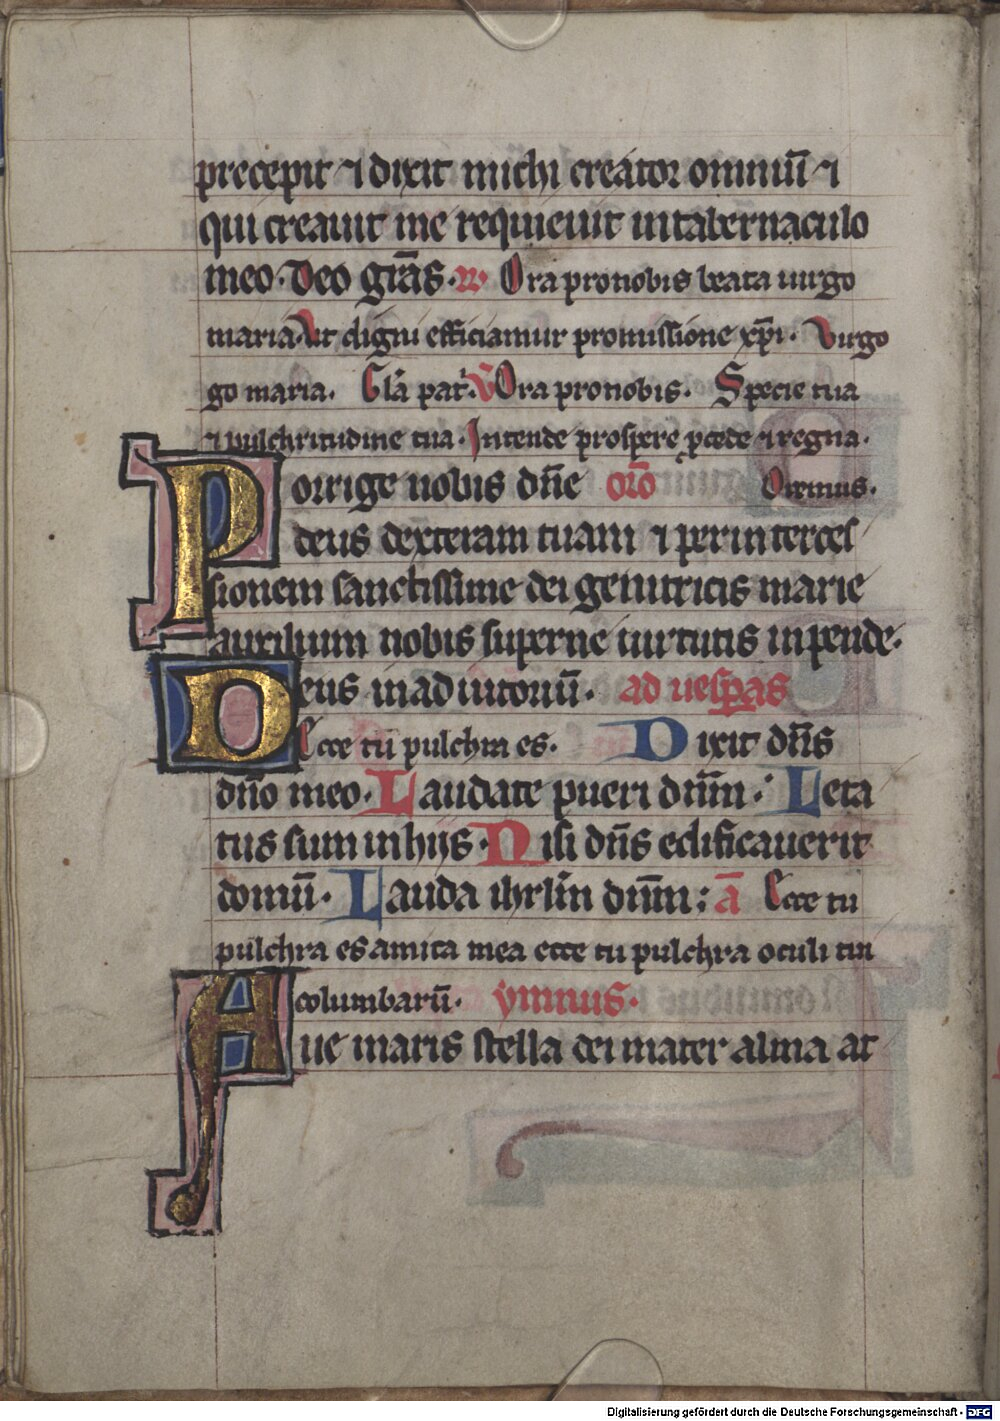 precepit ⁊ dixit michi creator omniū ⁊
qui creauit me requieuit in tabernaculo
meo · Deo grās · R Ora pro nobis beata uirgo
maria Vt digni efficiamur promissione xp̄i · Virgo
go maria · Glā pat᷑ · V Ora pro nobis · Specie tua
⁊ pulchritudine tua · Intende prospere ꝓcede ⁊ regna ·
Porrige nobis dn̄e orō Oremus ·
deus dexteram tuam ⁊ per interces
sionem sanctissime dei genitricis marie
auxilium nobis superne uirtutis inpende ·
Deus in adiutoriū · ad uesp̱as
Ecce tu pulchra es · Dixit dn̄s
dn̄o meo · Laudate pueri dn̄m · Leta
tus sum in hijs · Nisi dn̄s edificauerit
domū · Lauda ihrl̄m dn̄m ; ā Ecce tu
pulchra es amica mea ecce tu pulchra oculi tui
columbarū · ymnus ·
Aue maris stella dei mater alma at
Digitalisierung gefördert durch die Deutsche Forschungsgemeinschaft - DFG